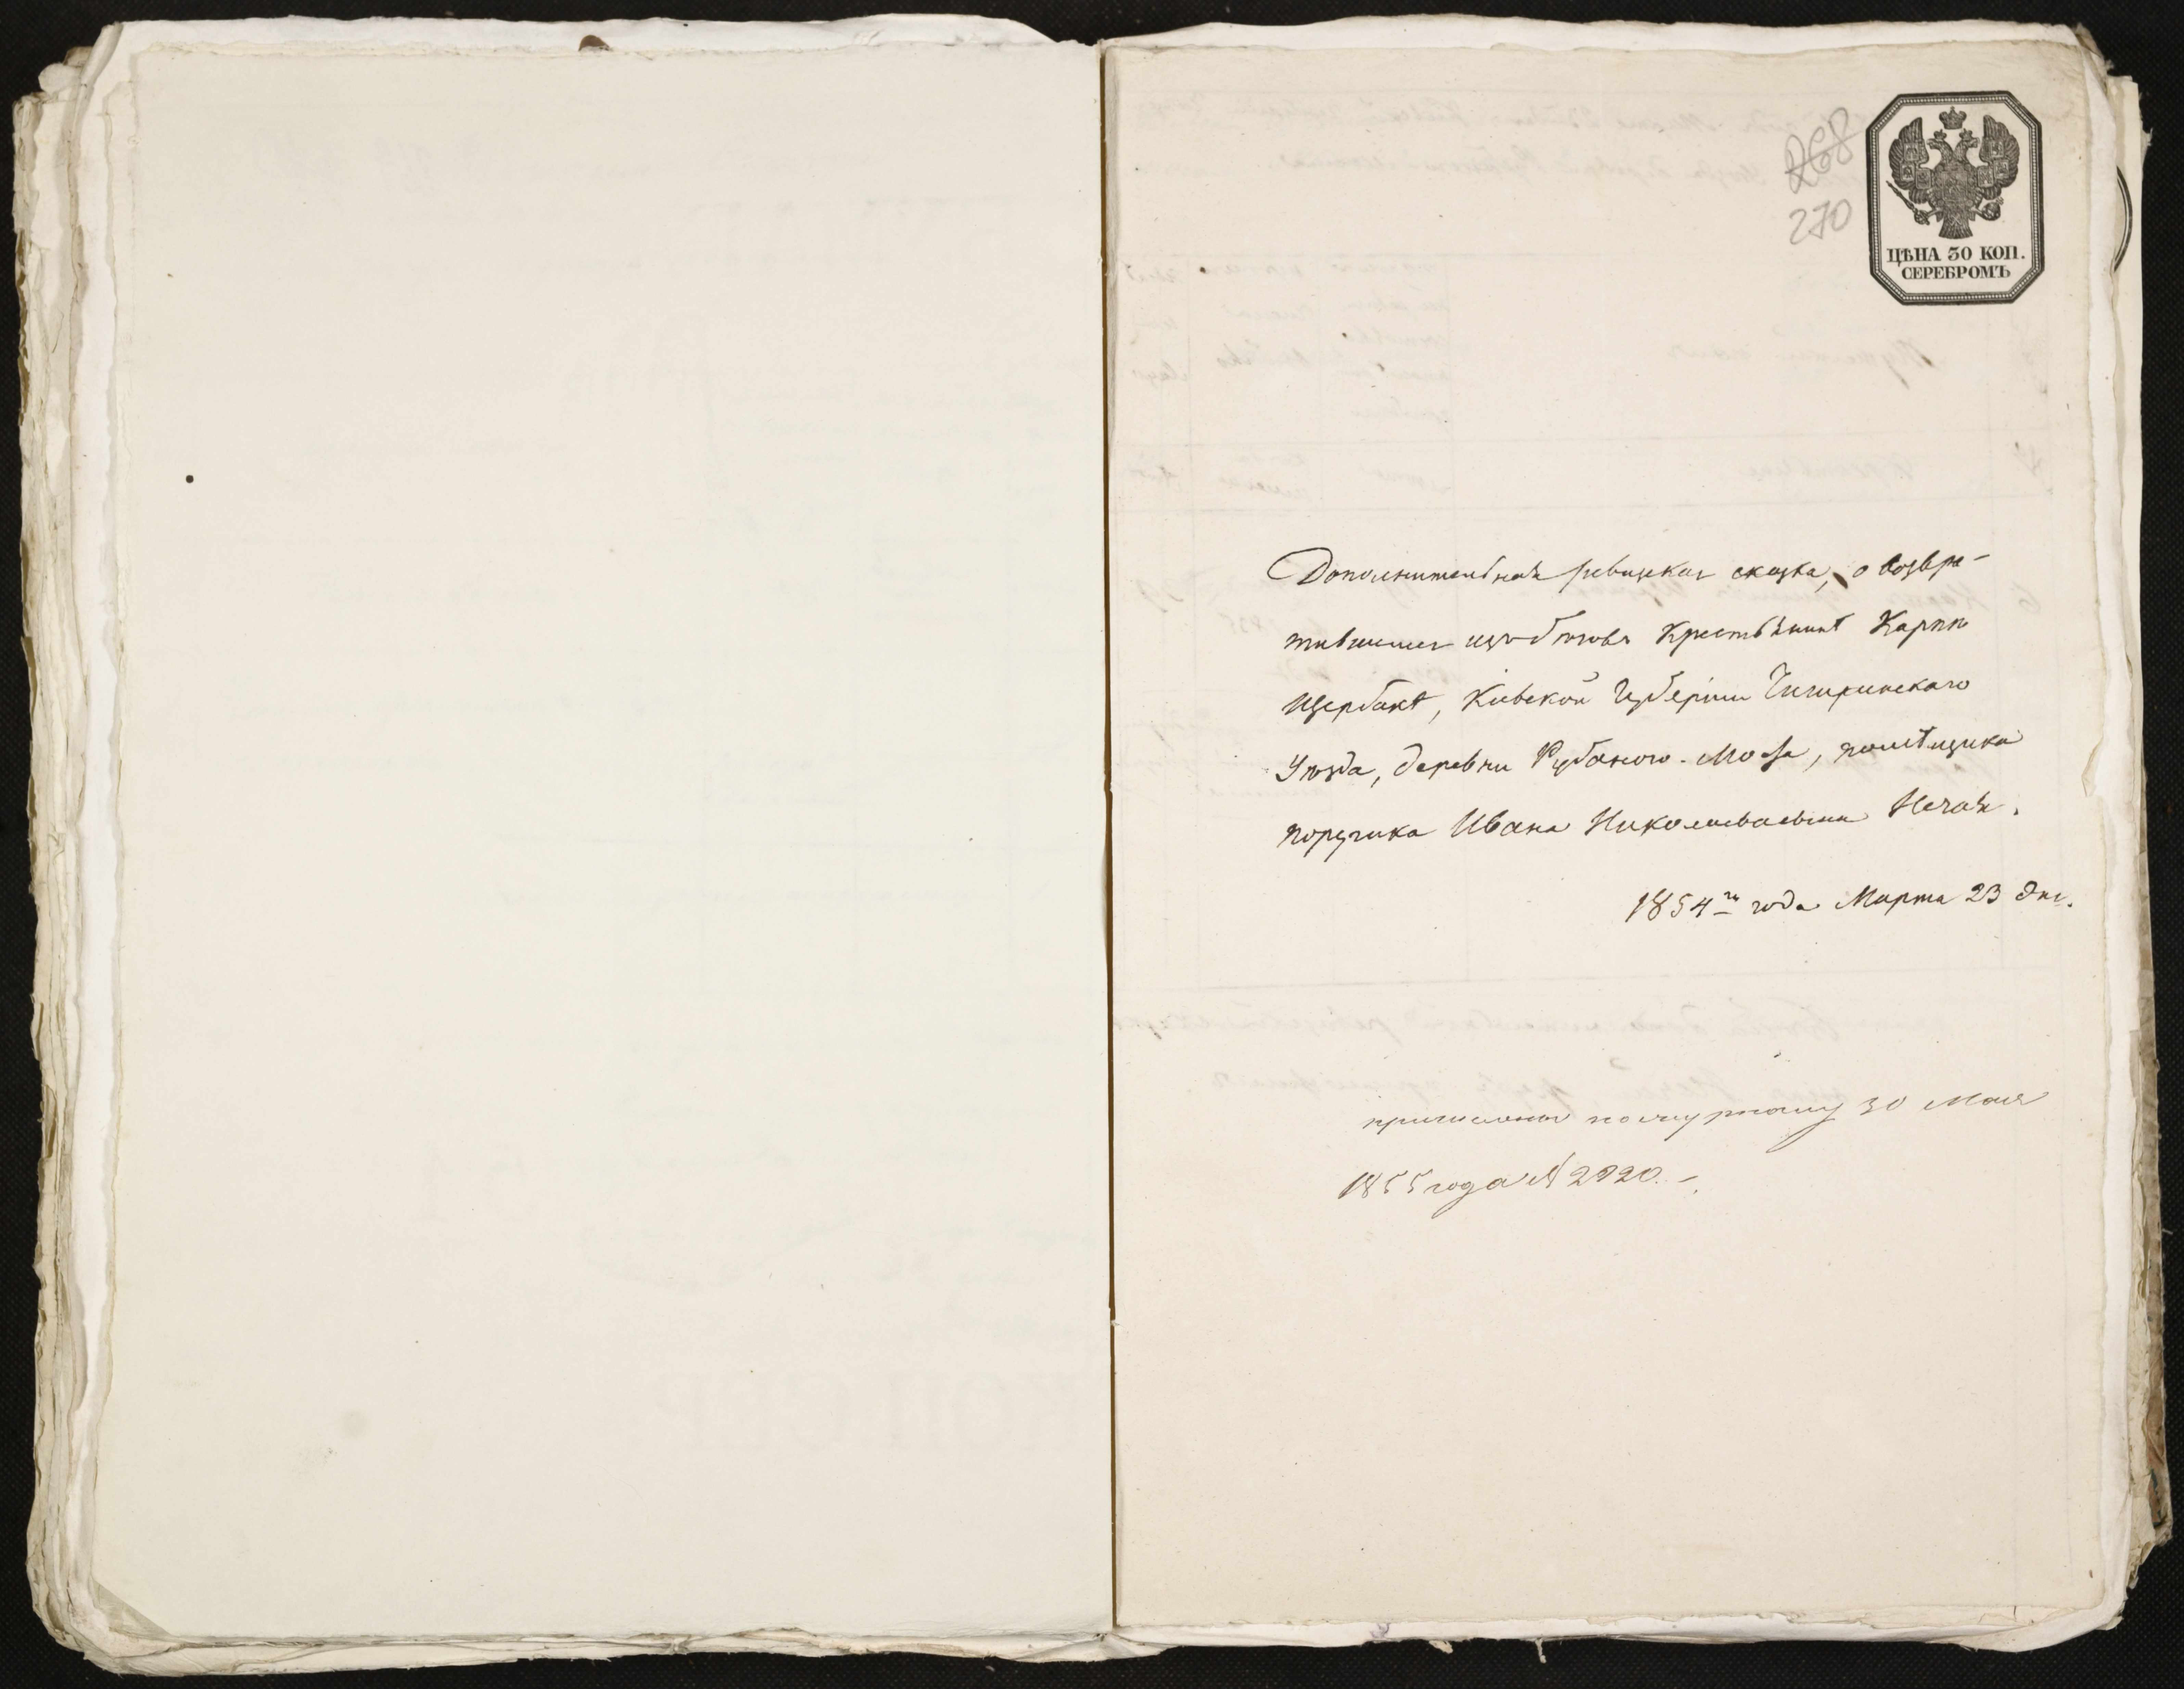 268
270
ЦѢНА 30 КОП.
СЕРЕБРОМЪ
Дополнительная ревизская сказка, о возвра-
тившемся изъ бѣговъ Крестьянинѣ Карпѣ
Щербакѣ, Кіевской Губерніи Чигиринскаго
Уѣзда, деревни Рубаного-Моста, помѣщика
поручика Ивана Николаевича Нечая.
1854го года Марта 23 дня.
причислены по журналу 30 Мая
1855 года № 2920.